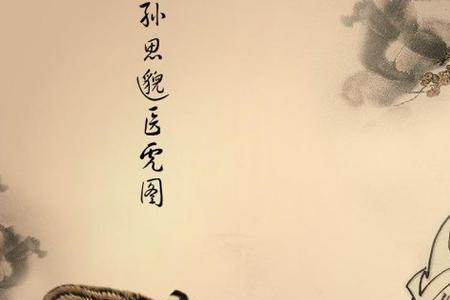 孙思邈医虎图